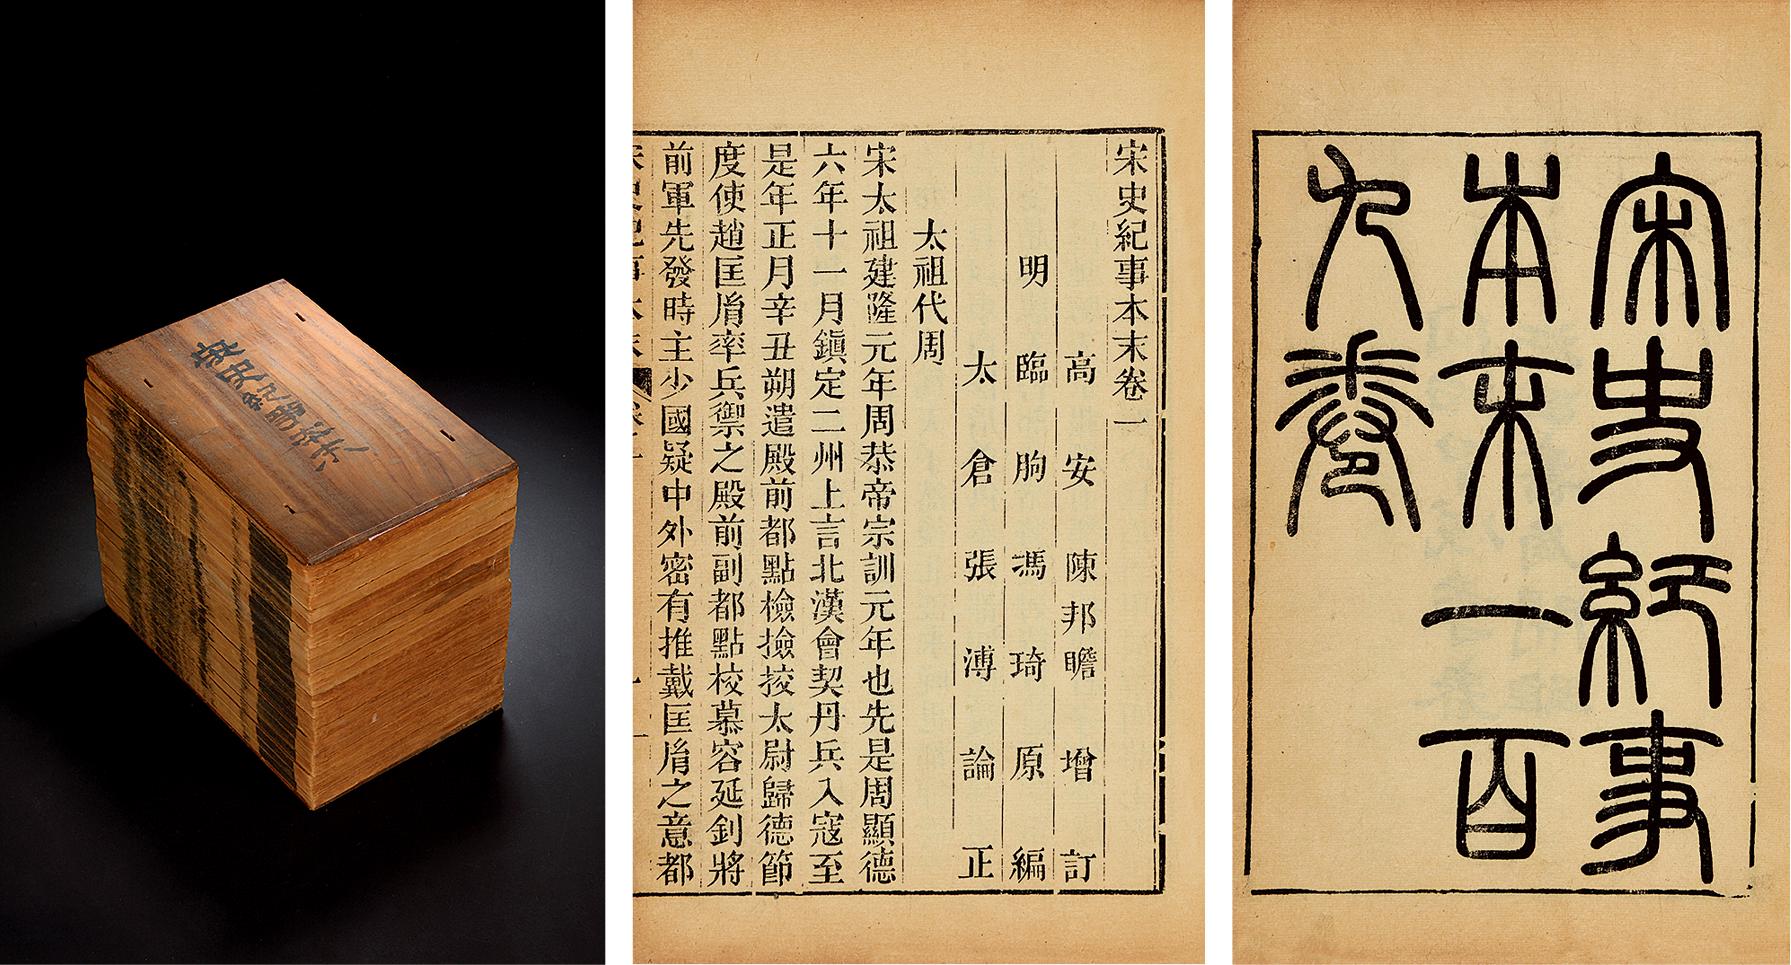 宋史紀事本末
宋史紀事本末卷一
高安陳邦瞻增訂
明臨朐馮琦原編
太倉張溥論正
太祖代周
宋太祖建隆元年周恭帝宗訓元年也先是周顯德
六年十一月鎮定二州上言北漢會契丹兵入寇至
是年正月辛丑朔遣殿前都點檢撿挍太尉歸德節
度使趙匡胤率兵禦之殿前副都點校慕容延釗將
前軍先發時主少國疑中外密有推戴匡胤之意都
宋史紀事
本末一百
九卷